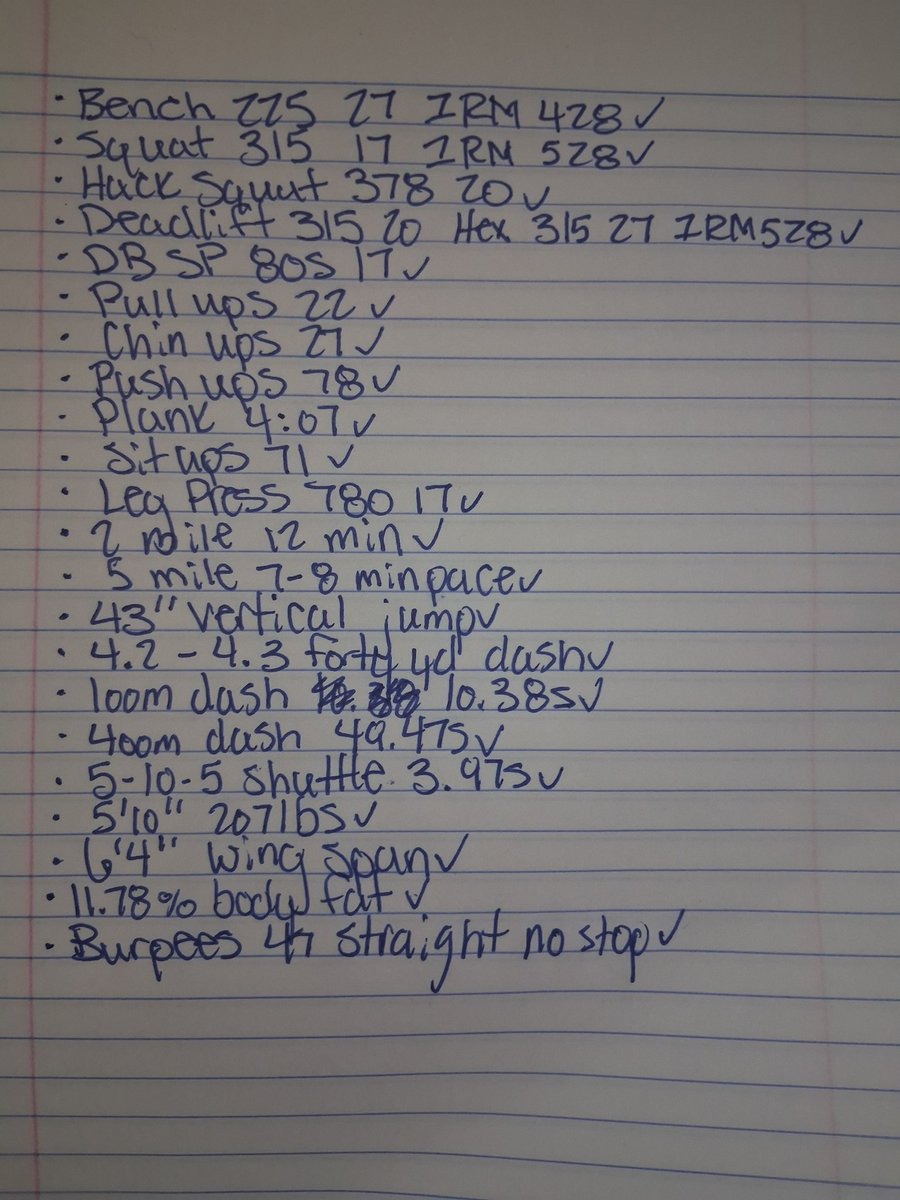 · Bench 225 27 1RM 428✓
· Squat 315 17 1RM 528✓
· Hack Squat 378 20✓
· Deadlift 315 20 Hex 315 27 1RM 528✓
· DB SP 80s 17✓
· Pull ups 22✓
· Chin ups 27✓
· Push ups 78✓
· Plank 4:07✓
· Sit ups 71✓
· Leg Press 780 17✓
· 2 mile 12 min✓
· 5 mile 7-8 min pace✓
· 43" vertical jump✓
· 4.2 - 4.3 forty yd dash✓
· 100m dash 10.38s✓
· 400m dash 49.47s✓
· 5-10-5 shuttle 3.97s✓
· 5'10" 207lbs✓
· 6'4" wing span✓
· 11.78% body fat✓
· Burpees 47 straight no stop✓